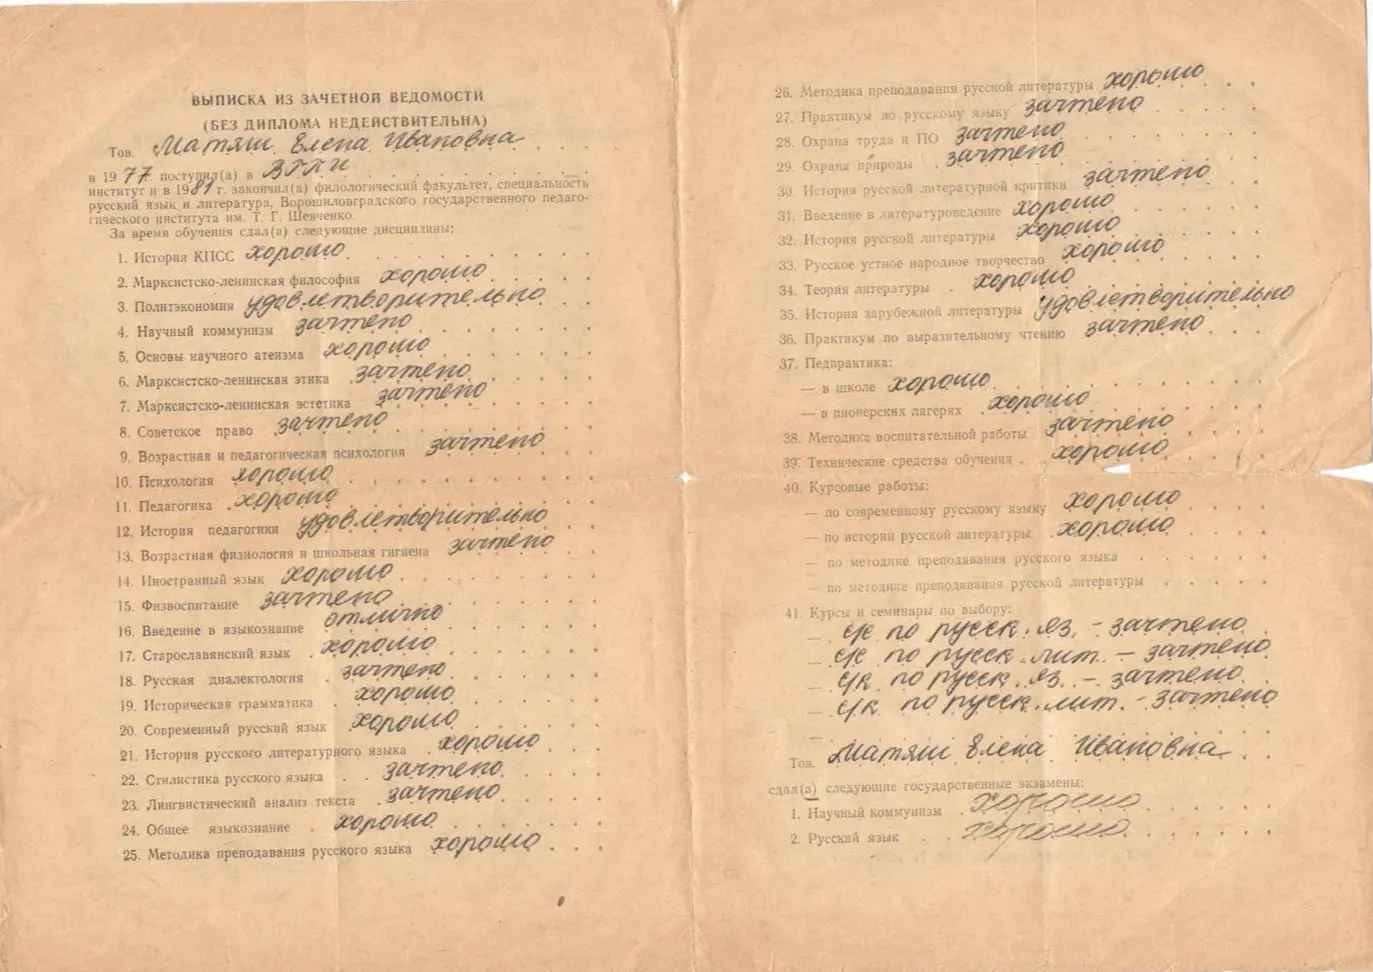 ВЫПИСКА ИЗ ЗАЧЕТНОЙ ВЕДОМОСТИ
(БЕЗ ДИПЛОМА НЕДЕЙСТВИТЕЛЬНА)
Тов. Матяш Елена Ивановна
в 1977 поступил(а) в ВГПИ
институт и в 1981 г. закончил(а) филологический факультет, специальность
русский язык и литература, Ворошиловградского государственного педаго-
гического института им. Т. Г. Шевченко.
За время обучения сдал(а) следующие дисциплины:
1. История КПСС хорошо
2. Марксистско-ленинская философия хорошо
3. Политэкономия удовлетворительно
4. Научный коммунизм зачтено
5. Основы научного атеизма хорошо
6. Марксистско-ленинская этика зачтено
7. Марксистско-ленинская эстетика зачтено
8. Советское право зачтено
9. Возрастная и педагогическая психология зачтено
10. Психология хорошо
11. Педагогика хорошо
12. История педагогики удовлетворительно
13. Возрастная физиология и школьная гигиена зачтено
14. Иностранный язык хорошо
15. Физвоспитание зачтено
16. Введение в языкознание отлично
17. Старославянский язык хорошо
18. Русская диалектология зачтено
19. Историческая грамматика хорошо
20. Современный русский язык хорошо
21. История русского литературного языка хорошо
22. Стилистика русского языка зачтено
23. Лингвистический анализ текста зачтено
24. Общее языкознание хорошо
25. Методика преподавания русского языка хорошо
26. Методика преподавания русской литературы хорошо
27. Практикум по русскому языку зачтено
28. Охрана труда и ПО зачтено
29. Охрана природы зачтено
30. История русской литературной критики зачтено
31. Введение в литературоведение хорошо
32. История русской литературы хорошо
33. Русское устное народное творчество хорошо
34. Теория литературы хорошо
35. История зарубежной литературы удовлетворительно
36. Практикум по выразительному чтению зачтено
37. Педпрактика:
— в школе хорошо
— в пионерских лагерях хорошо
38. Методика воспитательной работы зачтено
39. Технические средства обучения хорошо
40. Курсовые работы:
— по современному русскому языку хорошо
— по истории русской литературы хорошо
— по методике преподавания русского языка
— по методике преподавания русской литературы
41. Курсы и семинары по выбору:
— с/с по русск. яз. - зачтено
— с/с по русск. лит. - зачтено
— с/к по русск. яз. - зачтено
— с/к по русск. лит. - зачтено
Тов. Матяш Елена Ивановна
сдал(а) следующие государственные экзамены:
1. Научный коммунизм хорошо
2. Русский язык хорошо